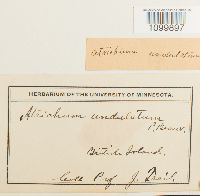 1099897
Atrichum undulatum
HERBARIUM OF THE UNIVERSITY OF MINNESOTA.
Atrichum undulatum
P. Beauv.
British Island.
Coll Prof J.